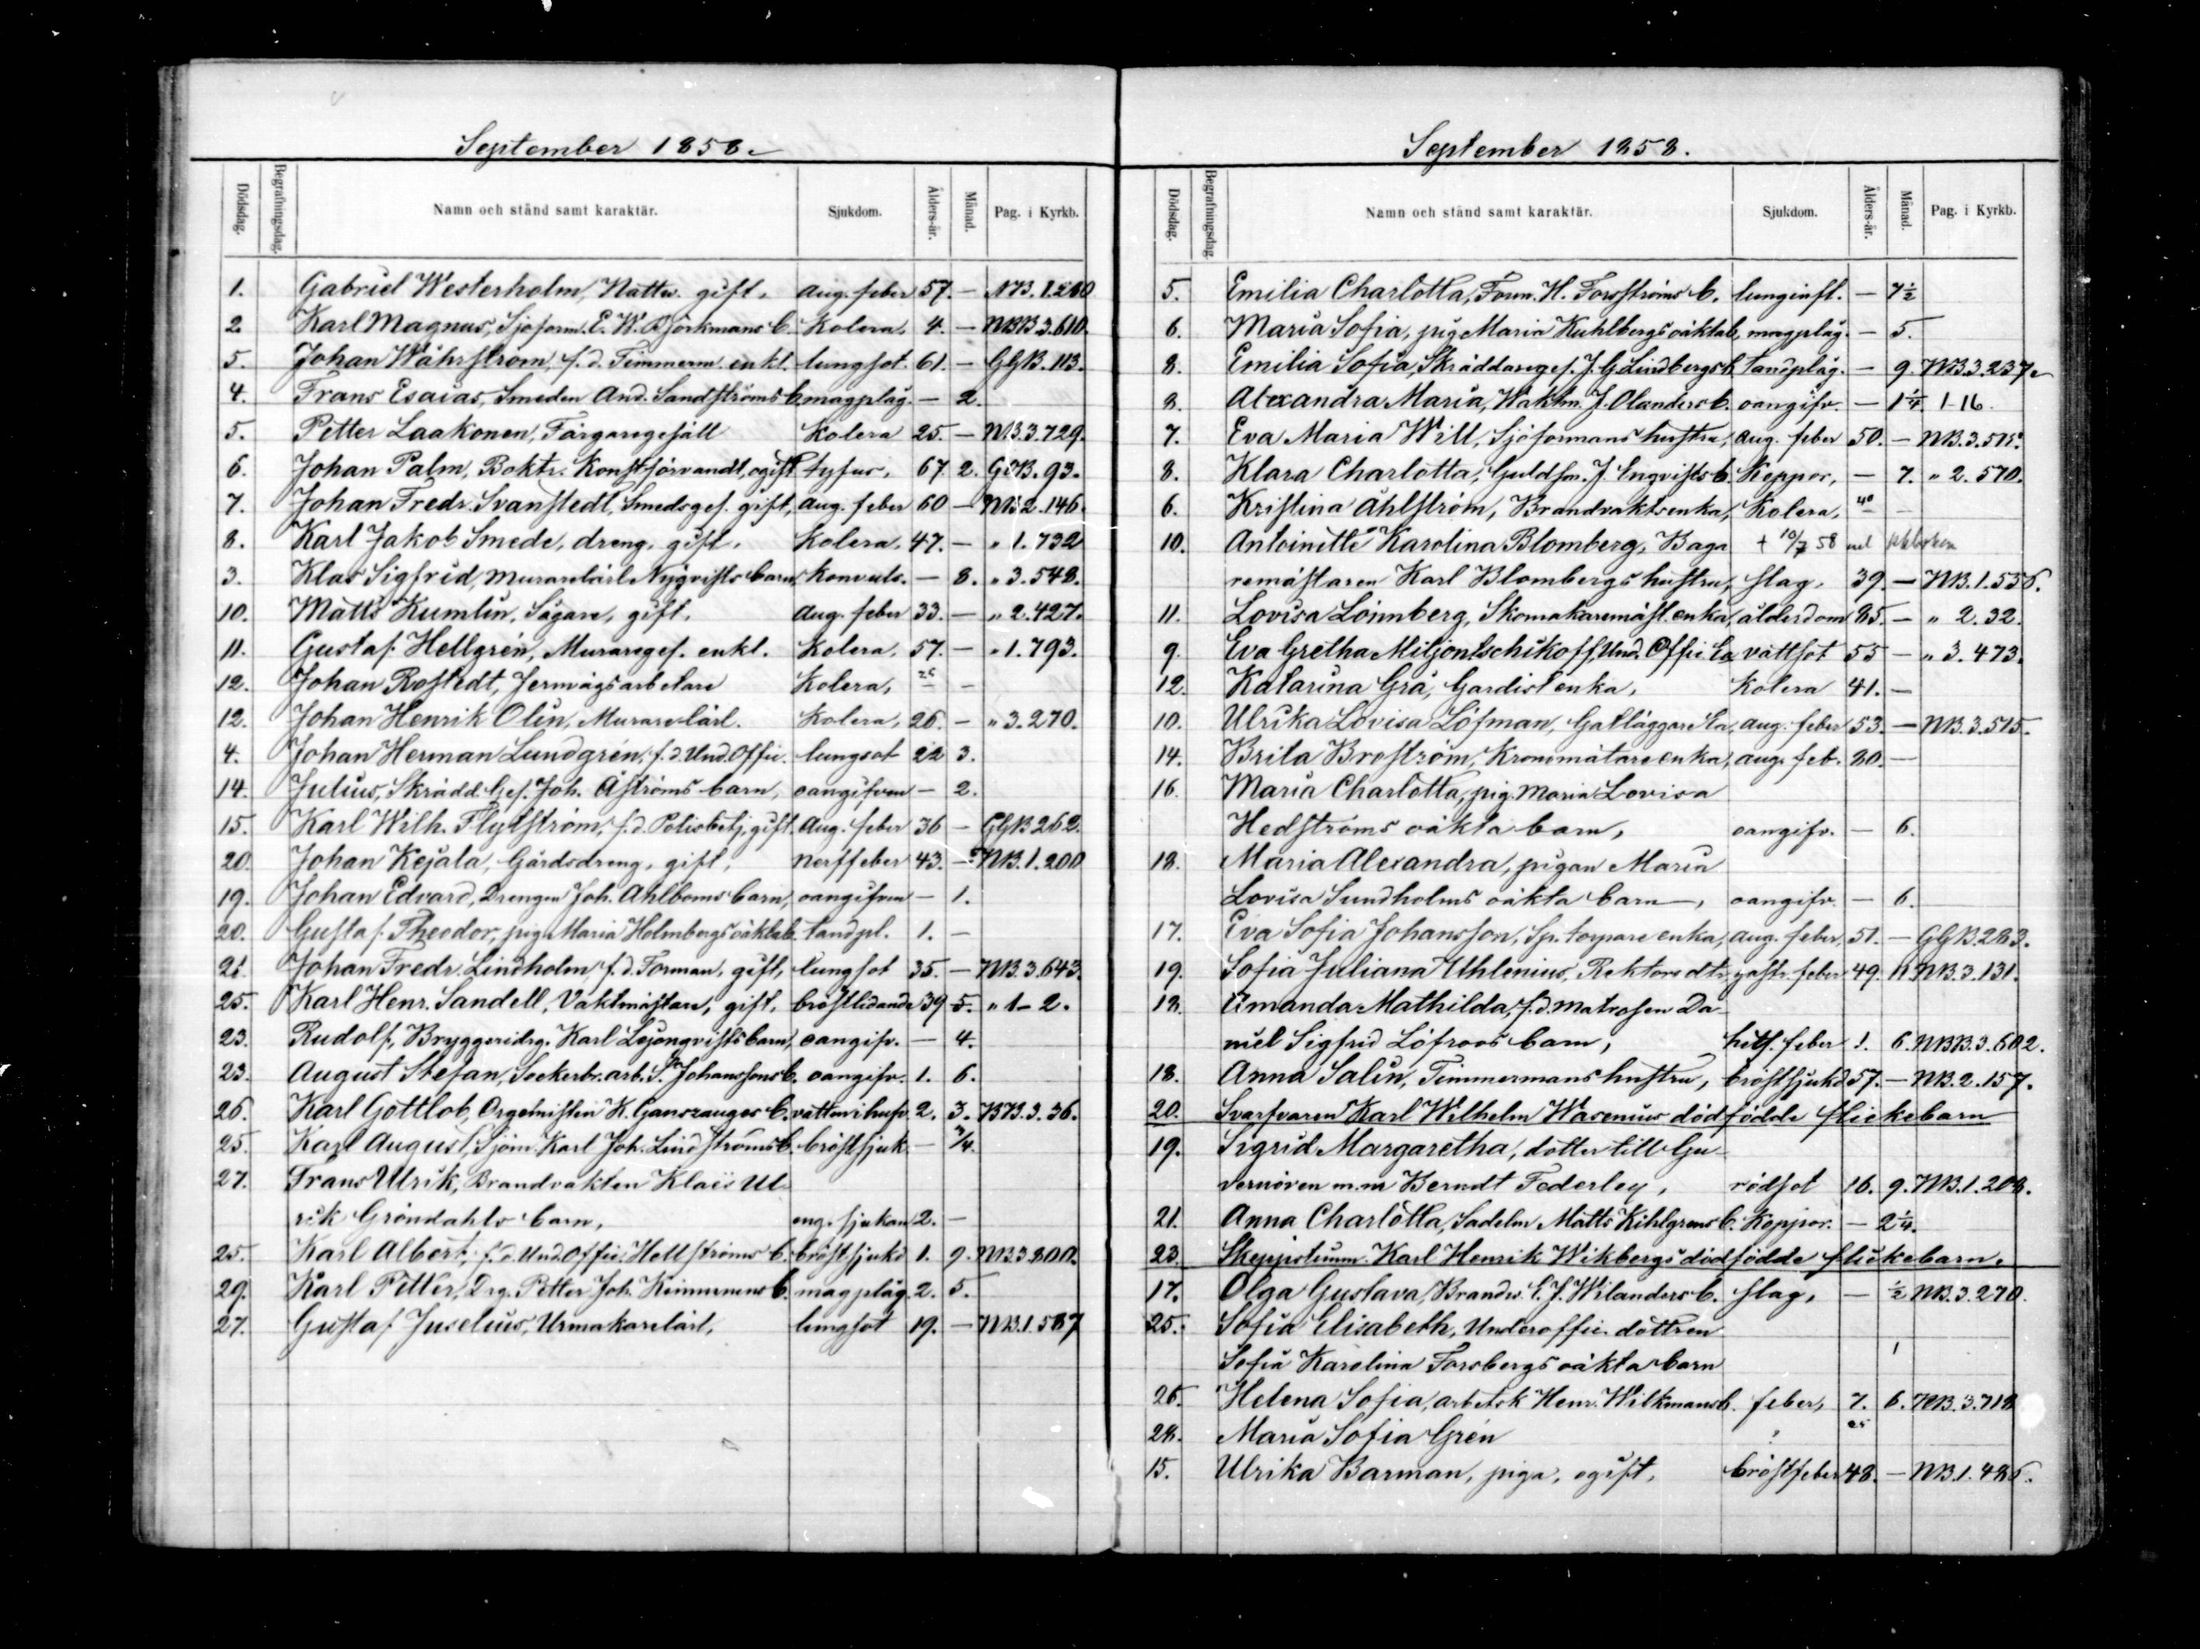 September 1858.
Dödsdag. Begrafningsdag. Namn och stånd samt karaktär. Sjukdom. Ålders-år. Månad. Pag. i Kyrkb.
1. Gabriel Westerholm, Nattv. gift, aug. feber 57. — NB. 1.260
2 Karl Magnus, Sjöform. C. W. Björkmans b. Kolera, 4. — NBB 3.610.
5. Johan Wåhrström, f.d. Timmerm. enkl. lungsot. 61. — GGB. 113.
4. Frans Esaias, Smeden And. Sandströms b. magplåg. — 2.
5. Petter Laakonen, Färgaregesäll Kolera 25. — NB. 3.729.
6. Johan Palm, Boktr. Konstförvandt, ogift tyfus, 67. 2. GGB. 93.
7. Johan Fredr. Svanstedt, Smedsges. gift, aug. feber 60 — NB 2.146.
8. Karl Jakob Smede, dreng, gift, Kolera, 47. — „ 1.732
3. Klas Sigfrid, Murarelärl. Nyqvists barn, konvuls. — 8. „ 3.548.
10. Matts Kumlin, Sågare, gift, aug. feber 33. — „ 2.427.
11. Gustaf Hellgrén, Murareges. enkl. Kolera, 57. — „ 1.793.
12. Johan Rostedt, Jernvägsarbetare Kolera, 25 —
12. Johan Henrik Olin, Murarelärl. Kolera, 26. — „ 3.270.
4. Johan Herman Lundgrén, f.d. Und. Offic. lungsot 22 3.
14. Julius, Skrädd. Ges. Joh. Åströms barn, oangifven — 2.
15. Karl Wilh. Flytström, f.d. Polisbetj. gift. Aug. feber 36 — GGB 262.
20. Johan Kejala, Gårdsdreng, gift, nerffeber 43. — NB. 1.200
19. Johan Edvard, Drengen Joh. Ahlboms barn, oangifven — 1.
20. Gustaf Theodor, pig. Maria Holmbergs oäkta b. tandpl. 1. —
21. Johan Fredr. Lindholm, f.d. Forman, gift, lungsot 35. — NB. 3.643.
25. Karl Henr. Sandell, Vaktmästare, gift, bröstlidande 39 5. „ 1-2.
23. Rudolf, Bryggeridrg. Karl Lejonqvists barn, oangifv. — 4.
23. August Stefan, Sockerbr. arb. S. Johanssons b. oangifv. 1. 6.
26. Karl Gottlob, Orgelnisten K. Ganszauges b. vatten i hufv. 2. 3. BB. 3.36.
25. Karl August, Sjöm. Karl Joh. Lindströms b. bröstsjuk. — 3/4.
27. Frans Ulrik, Brandvakten Klas Ul-
rik Gröndahls barn, eng. sjukan 2. —
25. Karl Albert, f.d. Und. Offic. Hellströms b. bröstsjukd. 1. 9. NB 3.800.
29. Karl Petter, Drg. Petter Joh. Kimmunens b. magplåg. 2. 5.
27. Gustaf Juselius, Urmakarelärl. lungsot 19. — NB. 1.587
September 1858.
Dödsdag. Begrafningsdag. Namn och stånd samt karaktär. Sjukdom. Ålders-år. Månad. Pag. i Kyrkb.
5. Emilia Charlotta, Form. H. Forsströms b. lunginfl. — 7½
6. Maria Sofia, pig. Maria Kuhlbergs oäkta b, magplåg. — 5.
8. Emilia Sofia, Skräddareges. J. G. Lindbergs b. tandplåg. — 9. NB. 3.237.
8. Alexandra Maria, Vaktm. J. Olanders b. oangifv. — 1¼. 1-16.
7. Eva Maria Will, Sjöformans hustru, aug. feber 50. — NB. 3.515.
8. Klara Charlotta, Guldsm. J. Engvists b. Koppor, — 7. „ 2.570.
6. Kristina Åhlström, Brandvaktsenka, Kolera, 40 —
10. Antoinette Karolina Blomberg, Baga- + 10/7 58
remästaren Karl Blombergs hustru, slag, 39. — NB. 1.556.
11. Lovisa Lönnberg, Skomakaremäst. enka, ålderdom 85. — „ 2.32.
9. Eva Gretha Miljontschikoff, Und. Offic. Ea vattsot 55 — „ 3.473.
12. Katarina Grå, Gardist enka, Kolera 41. —
10. Ulrika Lovisa Löfman, Gatläggare Ea, aug. feber 53. — NB. 3.515.
14. Brita Broström, Kronomätare enka, aug. feb. 80. —
16. Maria Charlotta, pig. Maria Lovisa
Hedströms oäkta barn, oangifv. — 6.
18. Maria Alexandra, pigan Maria
Lovisa Sundholms oäkta barn, oangifv. — 6.
17. Eva Sofia Johansson, Sp. torpare enka, aug. feber, 51. — GGB. 283.
19. Sofia Juliana Uhlenius, Rektors dtr. gastr. feber 49. 11. NB. 3.131.
18. Amanda Mathilda, f.d. matrosen Da-
niel Sigfrid Löfroos barn, hets. feber 1. 6. NBB. 3.602.
18. Anna Salin, Timmermans hustru, bröstsjukd. 57. — NB. 2.157.
20. Svarfvaren Karl Wilhelm Wasenius dödfödde flickebarn
19. Sigrid Margaretha, dotter till Gu-
vernören m.m. Berndt Federley, rödsot 16. 9. NB. 1.208.
21. Anna Charlotta, Sadelm. Matts Kihlgrens b. Koppor. — 2¼.
23. Skeppstimm. Karl Henrik Wikbergs dödfödde flickebarn.
17. Olga Gustava, Brandv. C. J. Wilanders b. slag, — ½ NB. 3.270.
25. Sofia Elisabeth, Underoffic. dottren
Sofia Karolina Forsbergs oäkta barn 1
26. Helena Sofia, arbetsk. Henr. Wilkmans b. feber, 7. 6. NB. 3.718
28. Maria Sofia Grén ? 25
15. Ulrika Barman, piga, ogift, bröstfeber 48. — NB. 1.486.